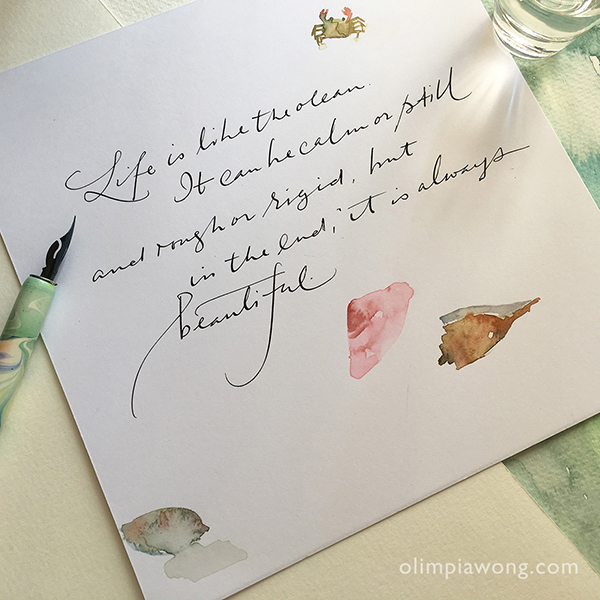 Life is like the ocean.
It can be calm or still
and rough or rigid, but
in the end, it is always
beautiful.
olimpiawong.com